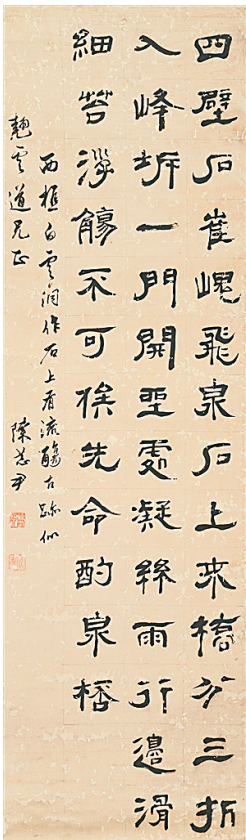 四壁石崔嵬飛泉石上来橋分三折
入峰坼一門開望處凝絲雨行邊滑
細苔浮觴不可俟先命酌泉桮
西樵白雲洞作石上有流觴古跡似
雲道兄正
陳恭尹